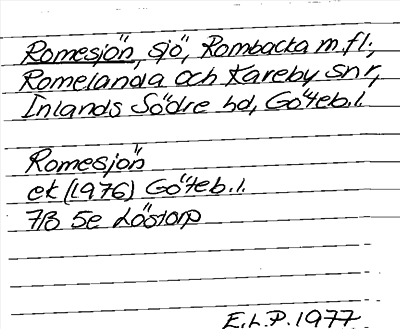 Romesjön, sjö, Rombacka m.fl.,
Romelanda och Kareby snr,
Inlands Södre hd, Göteb.l.
Romesjön
ek (1976) Göteb.l.
7B 5e Löstorp
E.L.P. 1977